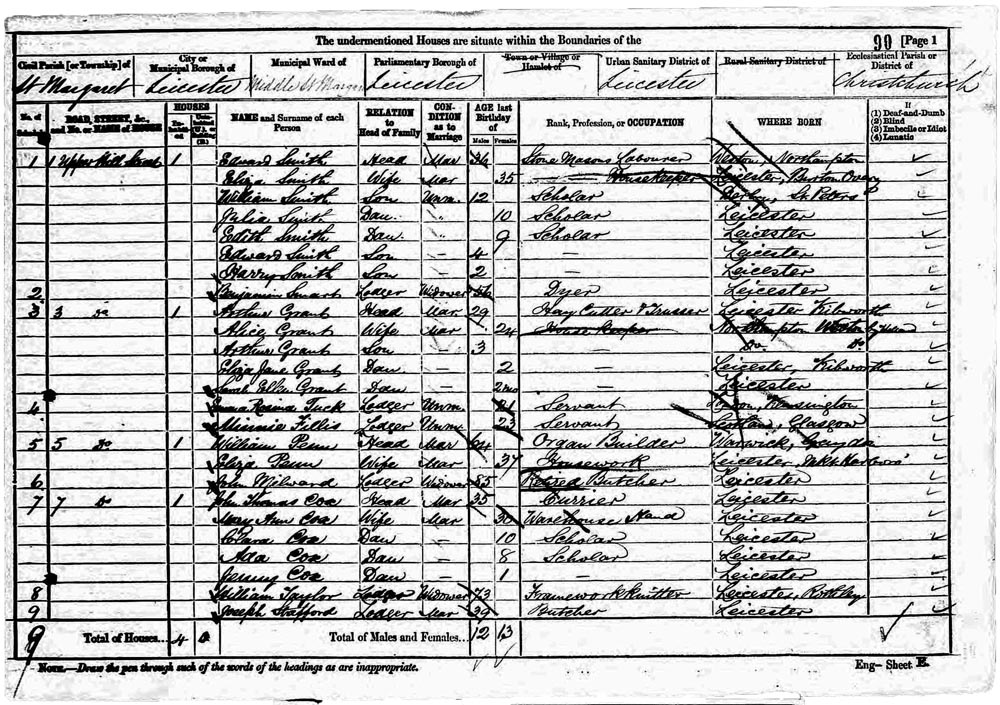 The undermentioned Houses are situate within the Boundaries of the
90 [Page 1
Civil Parish [or Township] of
City or Municipal Borough of
Municipal Ward of
Parliamentary Borough of
Town or Village or Hamlet of
Urban Sanitary District of
Rural Sanitary District of
Ecclesiastical Parish or District of
St Margaret Leicester Middle St Margaret Leicester Leicester Christchurch
No. of Schedule
ROAD, STREET, &c., and No. or NAME of HOUSE
HOUSES
NAME and Surname of each Person
RELATION to Head of Family
CONDITION as to Marriage
AGE last Birthday of
Males Females
Rank, Profession, or OCCUPATION
WHERE BORN
If
(1) Deaf-and-Dumb
(2) Blind
(3) Imbecile or Idiot
(4) Lunatic
1 1 Upper Hill Street 1 Edward Smith Head Mar 36 Stone Masons Labourer Weston, Northampton
Eliza Smith Wife Mar 35 — Housekeeper Leicester, Burton Overy
William Smith Son Unm. 12 Scholar Derby, St Peters
Julia Smith Dau. 10 Scholar Leicester
Edith Smith Dau. 9 Scholar Leicester
Edward Smith Son 4 — Leicester
Harry Smith Son — 2 — Leicester
2 Benjamin Smart Lodger Widower 56 Dyer Leicester
3 3 do 1 Arthur Grant Head Mar 29 Hay Cutter & Trusser Leicester Kibworth
Alice Grant Wife Mar 24 Housekeeper Northampton Weston by
Arthur Grant Son — 3 — Do. Do.
Eliza Jane Grant Dau — 2 Leicester, Kibworth
Sarah Ellen Grant Dau — 2mo — Leicester
4 Emma Rosina Tuck Lodger Unm. 21 Servant Kensington
Minnie Fillis Lodger Unm 23 Servant Scotland, Glasgow
5 5 do 1 William Penn Head Mar 64 Organ Builder Warwick,
Eliza Penn Wife Mar 37 Housework Leicester, Mkt Harboro'
6 John Milward Lodger Widower 85 Retired Butcher Leicester
7 7 do 1 John Thomas Cox Head Mar 35 Currier Leicester
Mary Ann Cox Wife Mar 30 Warehouse Hand Leicester
Clara Cox Dau — 10 Scholar Leicester
Ada Cox Dau — 8 Scholar Leicester
Jenny Cox Dau — 1 — Leicester
8 William Taylor Lodger Widower 73 Framework Knitter Leicester, Rothley
9 Joseph Stafford Lodger Mar 39 Butcher Leicester
9 Total of Houses... 4 0 Total of Males and Females... 12 13
NOTE.—Draw the pen through such of the words of the headings as are inappropriate.
Eng– Sheet E.